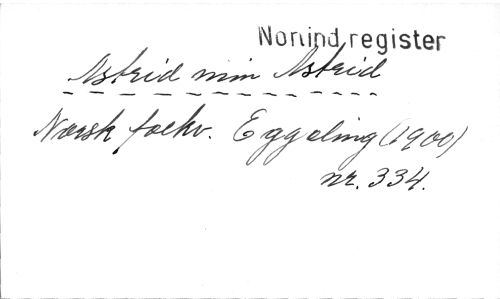 Norlind register
Astrid min Astrid
Norsk folkv. Eggeling (1900)
nr. 334.